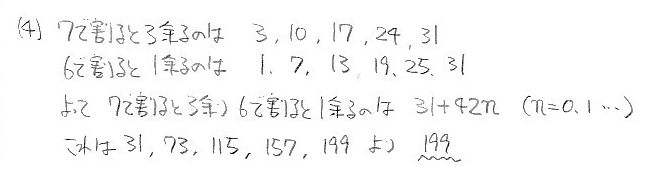 (4) 7で割ると3余るのは 3, 10, 17, 24, 31
6で割ると1余るのは 1, 7, 13, 19, 25, 31
よって 7で割ると3余り 6で割ると1余るのは 31+42n (n=0, 1 …)
これは 31, 73, 115, 157, 199 より 199